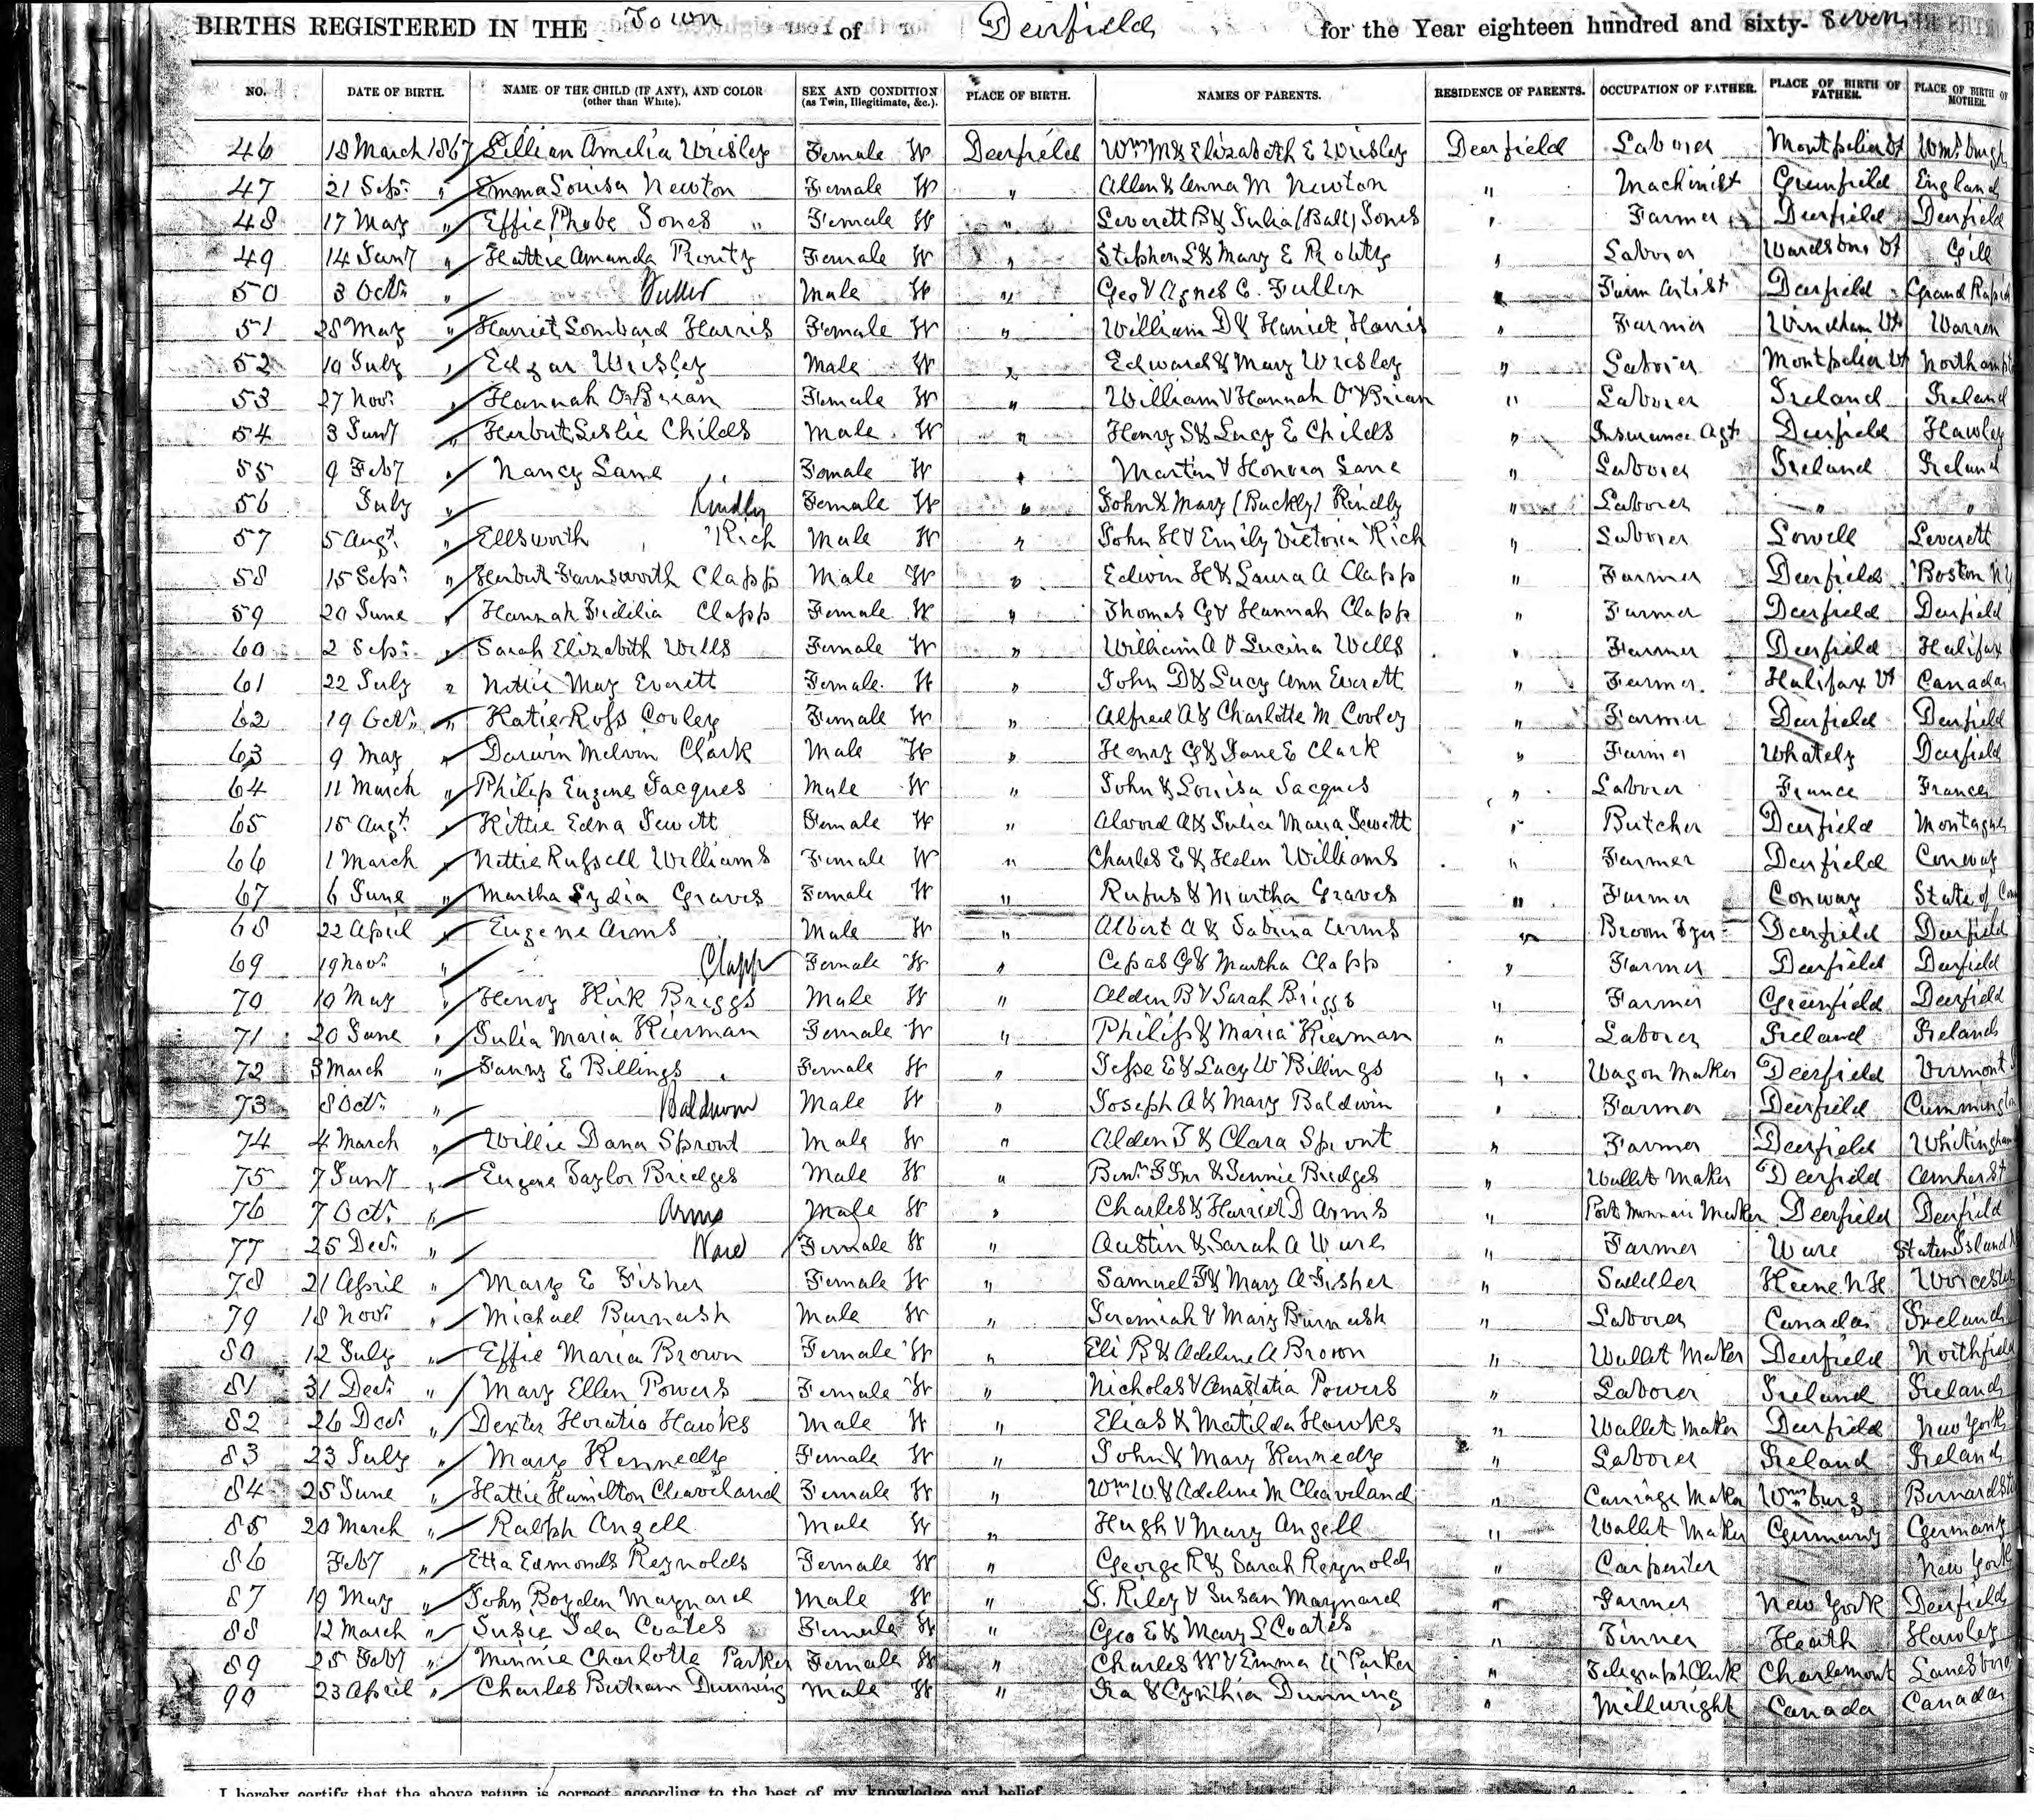 BIRTHS REGISTERED IN THE Town of Deerfield for the Year eighteen hundred and sixty-seven
NO. DATE OF BIRTH. NAME OF THE CHILD (IF ANY), AND COLOR (other than White). SEX AND CONDITION (as Twin, Illegitimate, &c.). PLACE OF BIRTH. NAMES OF PARENTS. RESIDENCE OF PARENTS. OCCUPATION OF FATHER. PLACE OF BIRTH OF FATHER. PLACE OF BIRTH OF MOTHER.
46 18 March 1867 Lillian Amelia Wrisley Female W Deerfield Wm M & Elizabeth E Wrisley Deerfield Laborer Montpelier Vt Wmsburgh
47 21 Sep. " Emma Louisa Newton Female W " Allen & Anna M Newton " Machinist Greenfield England
48 17 May " Effie Phebe Jones " Female W " Leverett B & Julia (Ball) Jones " Farmer Deerfield Deerfield
49 14 Jany " Hattie Amanda Female W " Stephen L & Mary E " Laborer Wardsboro Vt Gill
50 3 Oct. " Fuller Male W " Geo & Agnes C. Fuller " Farm Artist Deerfield Grand Rapid
51 28 May " Harriet Lombard Harris Female W " William D & Harriet Harris " Farmer Windham Vt Warren
52 19 July " Edgar Wrisley Male W " Edward & Mary Wrisley " Laborer Montpelier Vt Northampt
53 27 Nov. " Hannah O'Brian Female W " William & Hannah O'Brian " Laborer Ireland Ireland
54 3 Jany " Herbert Leslie Childs Male W " Henry S & Lucy E Childs " Insurance Agt Deerfield Hawley
55 9 Feby " Nancy Lane Female W " Martin & Honora Lane " Laborer Ireland Ireland
56 July " Kindly Female W " John & Mary (Buckly) Kindly " Laborer " "
57 5 Augt. " Ellsworth Rich Male W " John H & Emily Victoria Rich " Laborer Lowell Leverett
58 15 Sep. " Herbert Farnsworth Clapp Male W " Edwin H & Laura A Clapp " Farmer Deerfield Boston N Y
59 20 June " Hannah Fidilia Clapp Female W " Thomas G & Hannah Clapp " Farmer Deerfield Deerfield
60 2 Sep. " Sarah Elizabeth Wells Female W " William A & Lucina Wells " Farmer Deerfield Halifax
61 22 July " Nettie May Everett Female W " John D & Lucy Ann Everett " Farmer Halifax Vt Canada
62 19 Oct. " Katie Ross Cooley Female W " Alfred A & Charlotte M Cooley " Farmer Deerfield Deerfield
63 9 May " Darwin Melvin Clark Male W " Henry G & Jane E Clark " Farmer Whately Deerfield
64 11 March " Philip Eugene Jacques Male W " John & Louisa Jacques " Laborer France France
65 15 Augt. " Kittie Edna Jewett Female W " Alvord A & Julia Maria Jewett " Butcher Deerfield Montague
66 1 March " Nettie Russell Williams Female W " Charles E & Helen Williams " Farmer Deerfield Conway
67 6 June " Martha Lydia Graves Female W " Rufus & Martha Graves " Farmer Conway State of Con
68 22 April " Eugene Arms Male W " Albert A & Sabrina Arms " Broom Tyer Deerfield Deerfield
69 19 Nov. " Clapp Female W " Cepas G & Martha Clapp " Farmer Deerfield Deerfield
70 10 May " Henry Kirk Briggs Male W " Alden B & Sarah Briggs " Farmer Greenfield Deerfield
71 20 June " Julia Maria Kierman Female W " Philip & Maria Kierman " Laborer Ireland Ireland
72 3 March " Fanny E Billings Female W " Jesse E & Lucy W Billings " Wagon Maker Deerfield Vermont
73 8 Oct. " Baldwin Male W " Joseph A & Mary Baldwin " Farmer Deerfield Cummington
74 4 March " Willie Dana Sprout Male W " Alden J & Clara Sprout " Farmer Deerfield Whitingham
75 7 Jany " Eugene Taylor Bridges Male W " Benj. F Jnr & Jennie Bridges " Wallet Maker Deerfield Amherst
76 7 Oct. " Arms Male W " Charles & Harriet D Arms " Port Monnaie Maker Deerfield Deerfield
77 25 Dec. " Ware Female W " Austin & Sarah A Ware " Farmer Ware Staten Island
78 21 April " Mary E Fisher Female W " Samuel F & Mary A Fisher " Saddler Keene N H Worcester
79 18 Nov. " Michael Burnash Male W " Jeremiah & Mary Burnash " Laborer Canada Ireland
80 12 July " Effie Maria Brown Female W " Eli B & Adeline A Brown " Wallet Maker Deerfield Northfield
81 31 Dec. " Mary Ellen Powers Female W " Nicholas & Anastatia Powers " Laborer Ireland Ireland
82 26 Dec. " Dexter Horatio Hawks Male W " Elias & Matilda Hawks " Wallet Maker Deerfield New York
83 23 July " Mary Kennedy Female W " John & Mary Kennedy " Laborer Ireland Ireland
84 25 June " Hattie Hamilton Cleaveland Female W " Wm W. & Adeline M Cleaveland " Carriage Maker Wmsburg Bernardst
85 20 March " Ralph Angell Male W " Hugh & Mary Angell " Wallet Maker Germany Germany
86 Feby " Etta Edmonds Reynolds Female W " George R & Sarah Reynolds " Carpenter New York
87 19 May " John Boyden Maynard Male W " S. Riley & Susan Maynard " Farmer New York Deerfield
88 12 March " Susie Ida Coates Female W " Geo E & Mary L Coates " Tinner Heath Hawley
89 25 Feby " Minnie Charlotte Parker Female W " Charles W & Emma Parker " Telegraph Clerk Charlemont Lanesboro
90 23 April " Charles Bertram Dunning Male W " Ira & Cynthia Dunning " Millwright Canada Canada
I hereby certify that the above return is correct, according to the best of my knowledge and belief